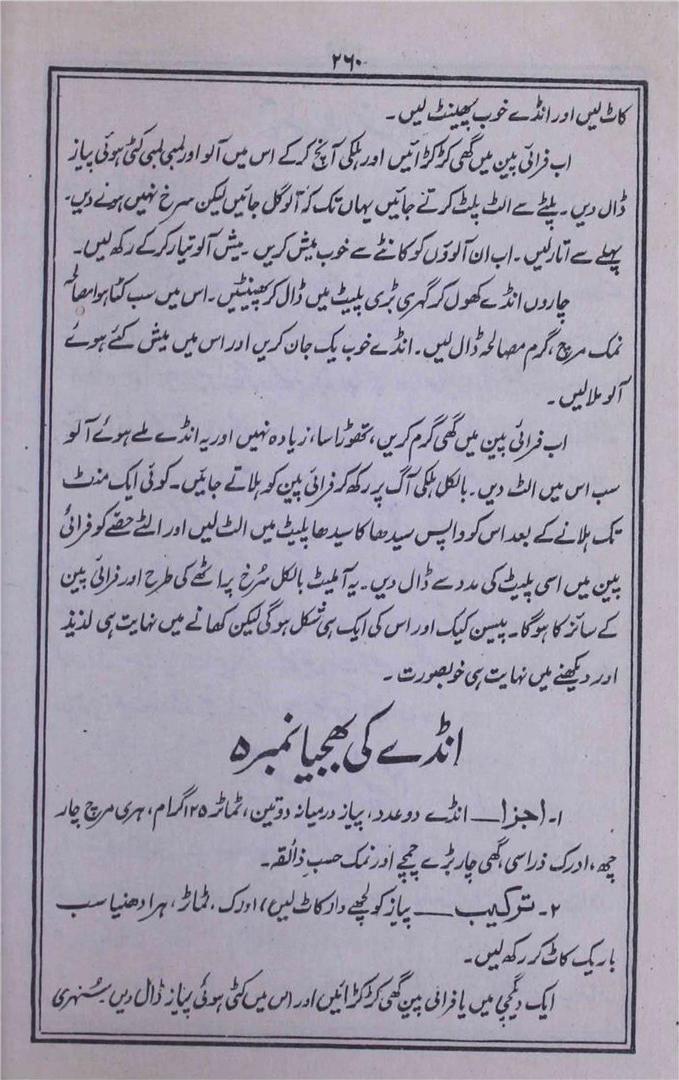 ۲۶۰
کاٹ لیں اور انڈے خوب پھینٹ لیں۔
اب فرائی پین میں گھی کڑکڑائیں اور ہلکی آنچ کرکے اس میں آلو اور لمبی لمبی کٹی ہوئی پیاز
ڈال دیں۔ پلٹے سے الٹ پلٹ کرتے جائیں یہاں تک کہ آلو گل جائیں لیکن سرخ نہیں ہونے دیں۔
پہلے سے اتار لیں۔ اب ان آلوؤں کو کانٹے سے خوب میش کریں۔ میش آلو تیار کرکے رکھ لیں۔
چاروں انڈے کھول کر گہری بڑی پلیٹ میں ڈال کر پھینٹیں۔ اس میں سب کٹا ہوا مصالحہ
نمک مرچ، گرم مصالحہ ڈال لیں۔ انڈے خوب یک جان کریں اور اس میں میش کئے ہوئے
آلو ملا لیں۔
اب فرائی پین میں گھی گرم کریں، تھوڑا سا، زیادہ نہیں اور یہ انڈے ملے ہوئے آلو
سب اس میں الٹ دیں۔ بالکل ہلکی آگ پر رکھ کر فرائی پین کو ہلاتے جائیں۔ کوئی ایک منٹ
تک ہلانے کے بعد اس کو واپس سیدھا کا سیدھا پلیٹ میں الٹ لیں اور الٹے حصّے کو فرائی
پین میں اسی پلیٹ کی مدد سے ڈال دیں۔ یہ آملیٹ بالکل سُرخ پراٹھے کی طرح اور فرائی پین
کے سائز کا ہوگا۔ پیسن کیک اور اس کی ایک ہی شکل ہوگی لیکن کھانے میں نہایت ہی لذیذ
اور دیکھنے میں نہایت ہی خوبصورت۔
انڈے کی بھجیا نمبر ۵
۱۔ اجزا ـــ انڈے دو عدد، پیاز درمیانہ دو تین، ٹماٹر ۱۲۵ گرام، ہری مرچ چار
چھ، ادرک ذرا سی، گھی چار بڑے چمچے اور نمک حسبِ ذائقہ۔
۲۔ ترکیب ـــ پیاز کو لچھے دار کاٹ لیں، ادرک، ٹماٹر، ہرا دھنیا سب
باریک کاٹ کر رکھ لیں۔
ایک دیگچی میں یا فرائی پین گھی کڑکڑائیں اور اس میں کٹی ہوئی پیاز ڈال دیں سُنہری